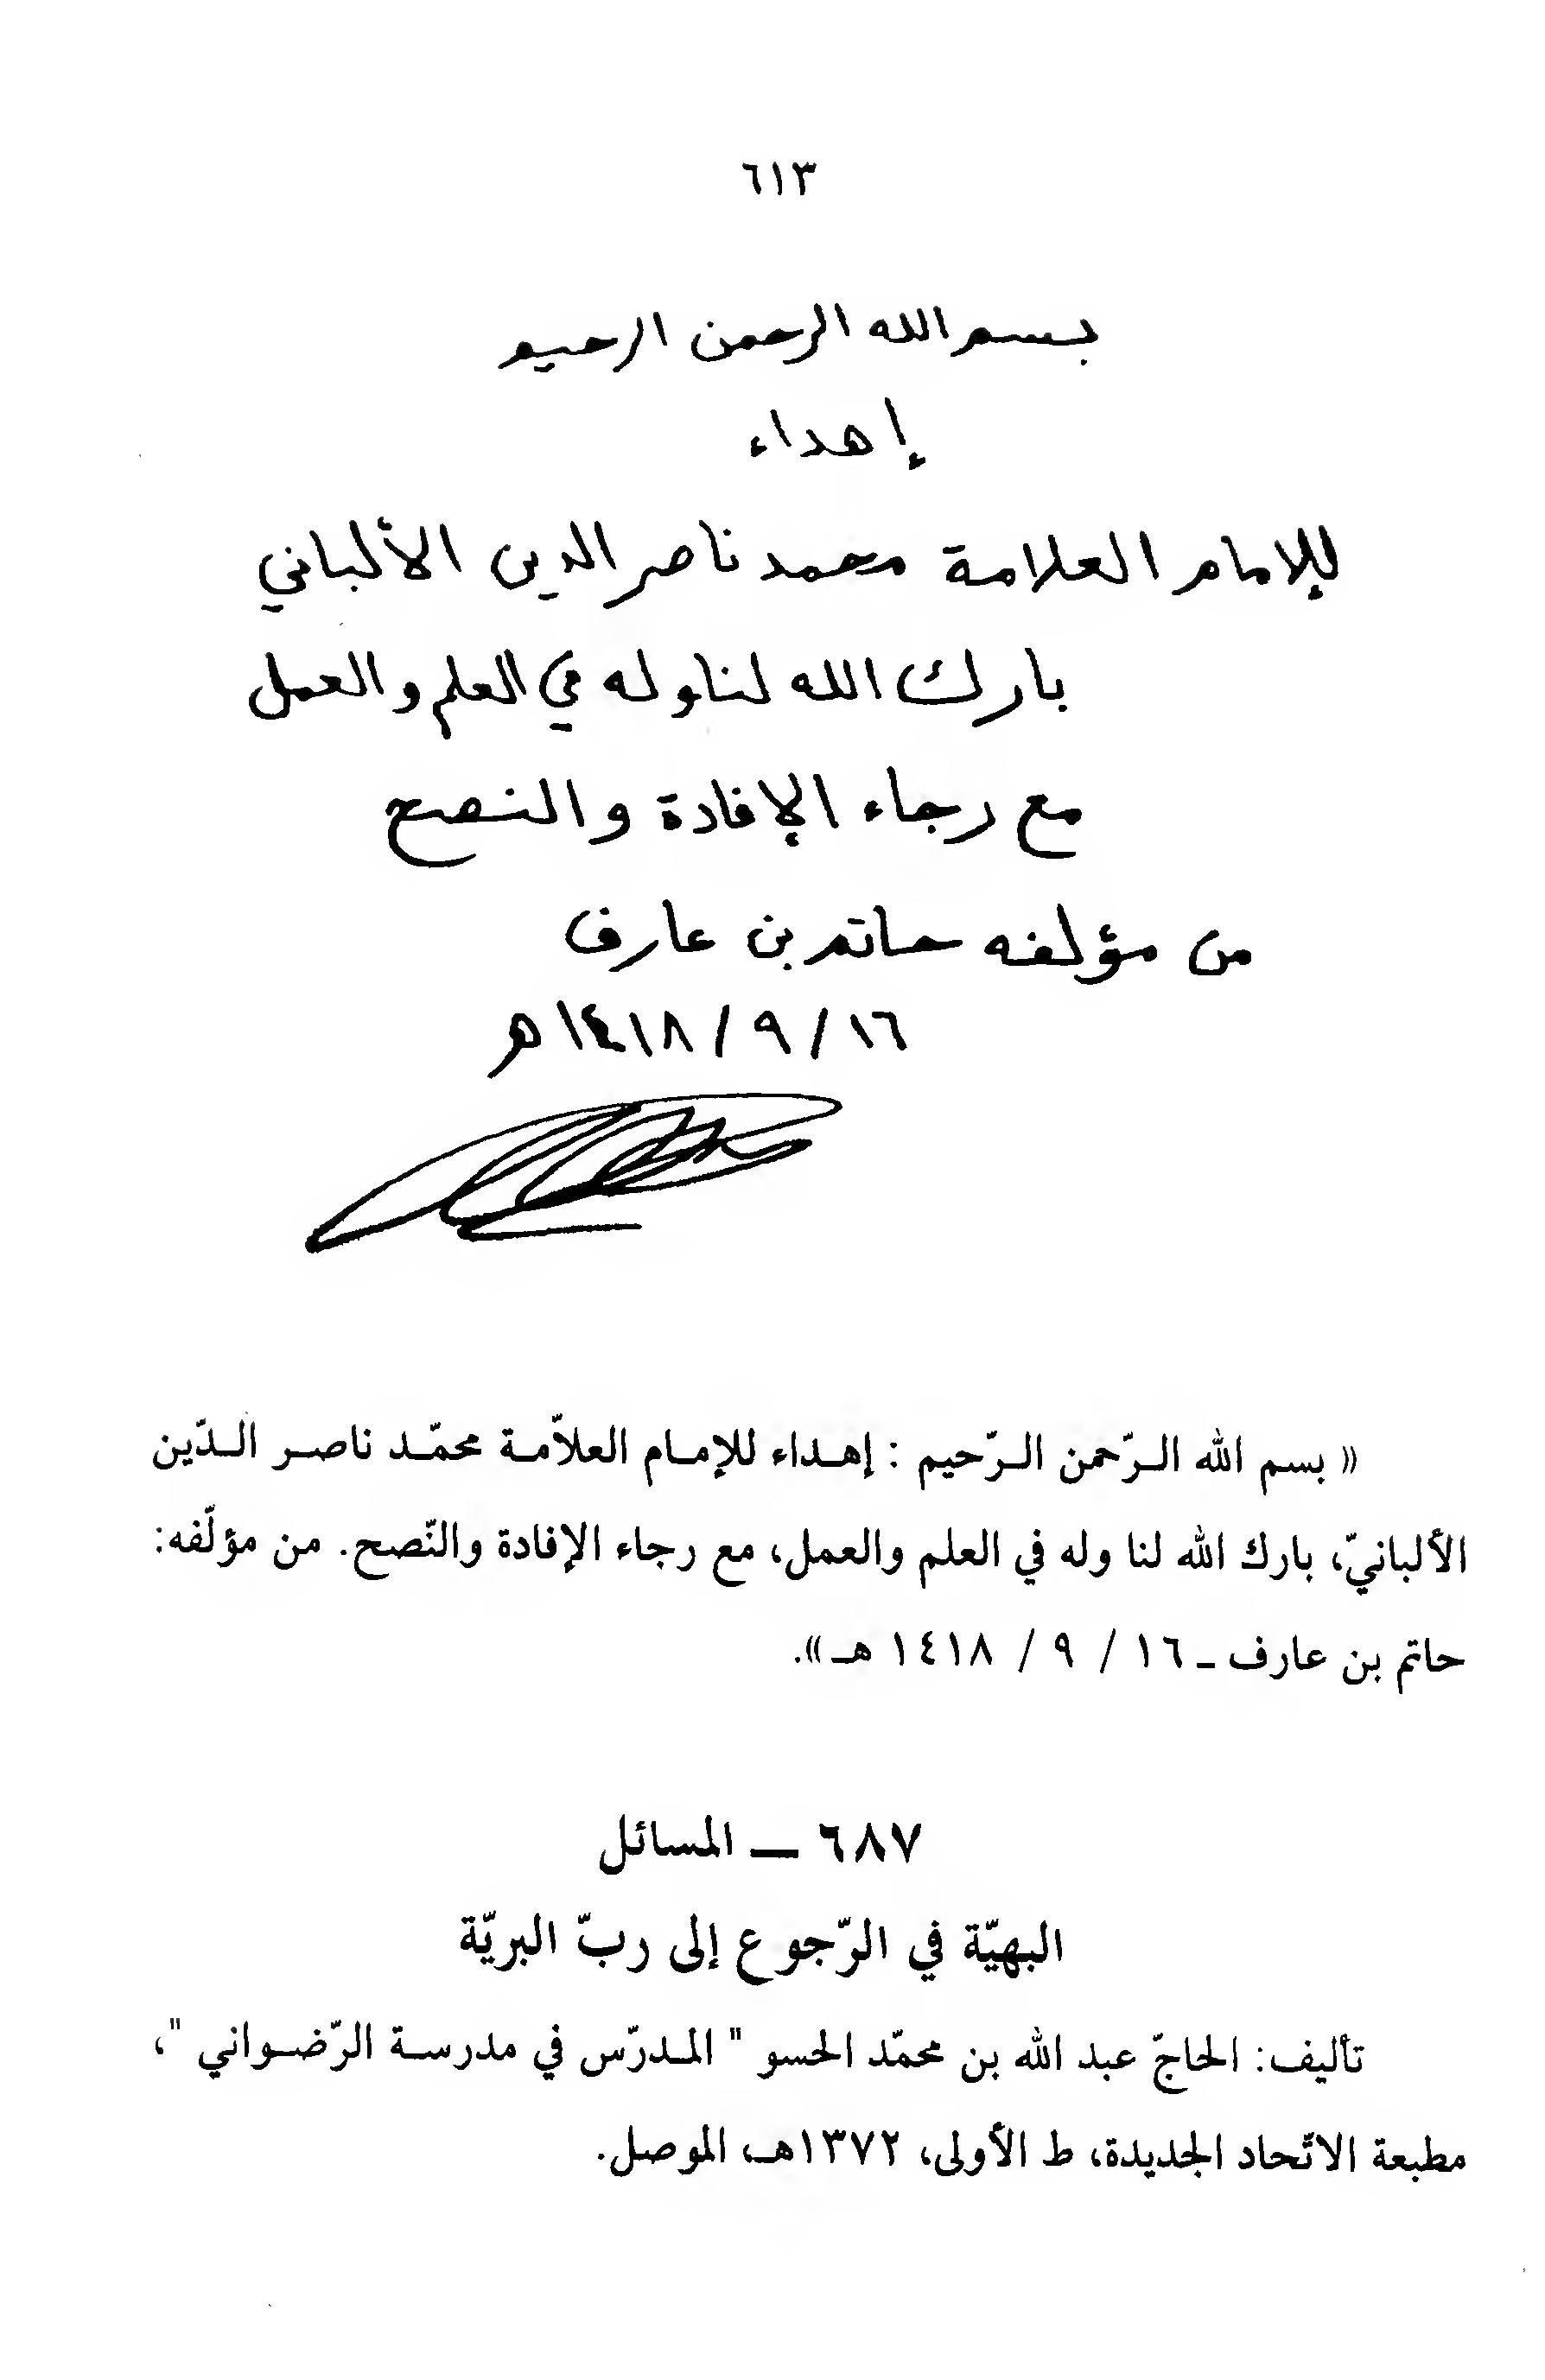 ٦١٣
بسم الله الرحمن الرحيم
إهداء
للإمام العلامة محمد ناصر الدين الألباني
بارك الله لنا وله في العلم والعمل
مع رجاء الإفادة والنصح
من مؤلفه حاتم بن عارف
١٦ / ٩ / ١٤١٨ هـ
« بسم الله الـرّحمن الـرّحيم : إهـداء للإمـام العلاّمـة محمّـد ناصـر الـدّين
الألبانيّ، بارك الله لنا وله في العلم والعمل، مع رجاء الإفادة والنّصح. من مؤلّفه:
حاتم بن عارف ـ ١٦ / ٩ / ١٤١٨ هـ ».
٦٨٧ ــ المسائل
البهيّة في الرّجوع إلى ربّ البريّة
تأليف: الحاجّ عبد الله بن محمّد الحسو " المـدرّس في مدرسـة الرّضـواني "،
مطبعة الاتّحاد الجديدة، ط الأولى، ١٣٧٢هـ، الموصل.